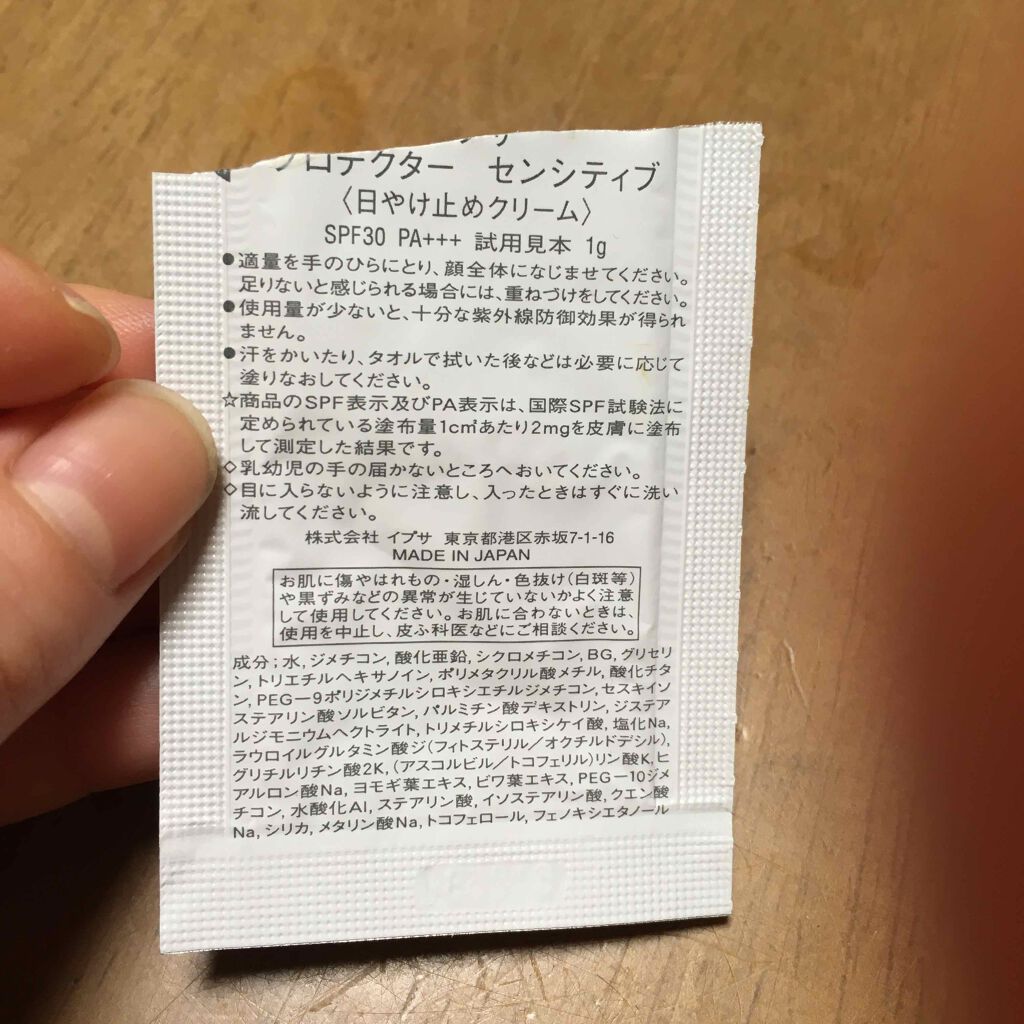 プロテクター センシティブ
〈日やけ止めクリーム〉
SPF30 PA+++ 試用見本 1g
●適量を手のひらにとり、顔全体になじませてください。
足りないと感じられる場合には、重ねづけをしてください。
●使用量が少ないと、十分な紫外線防御効果が得られ
ません。
●汗をかいたり、タオルで拭いた後などは必要に応じて
塗りなおしてください。
☆商品のSPF表示及びPA表示は、国際SPF試験法に
定められている塗布量1c㎡あたり2mgを皮膚に塗布
して測定した結果です。
◇乳幼児の手の届かないところへおいてください。
◇目に入らないように注意し、入ったときはすぐに洗い
流してください。
株式会社 イプサ 東京都港区赤坂7-1-16
MADE IN JAPAN
お肌に傷やはれもの・湿しん・色抜け(白斑等)
や黒ずみなどの異常が生じていないかよく注意
して使用してください。お肌に合わないときは、
使用を中止し、皮ふ科医などにご相談ください。
成分;水, ジメチコン, 酸化亜鉛, シクロメチコン, BG, グリセリ
ン, トリエチルヘキサノイン, ポリメタクリル酸メチル, 酸化チタ
ン, PEG－9ポリジメチルシロキシエチルジメチコン, セスキイソ
ステアリン酸ソルビタン, パルミチン酸デキストリン, ジステア
ルジモニウムヘクトライト, トリメチルシロキシケイ酸, 塩化Na,
ラウロイルグルタミン酸ジ(フィトステリル／オクチルドデシル),
グリチルリチン酸2K, (アスコルビル／トコフェリル)リン酸K, ヒ
アルロン酸Na, ヨモギ葉エキス, ビワ葉エキス, PEG－10ジメ
チコン, 水酸化Al, ステアリン酸, イソステアリン酸, クエン酸
Na, シリカ, メタリン酸Na, トコフェロール, フェノキシエタノール